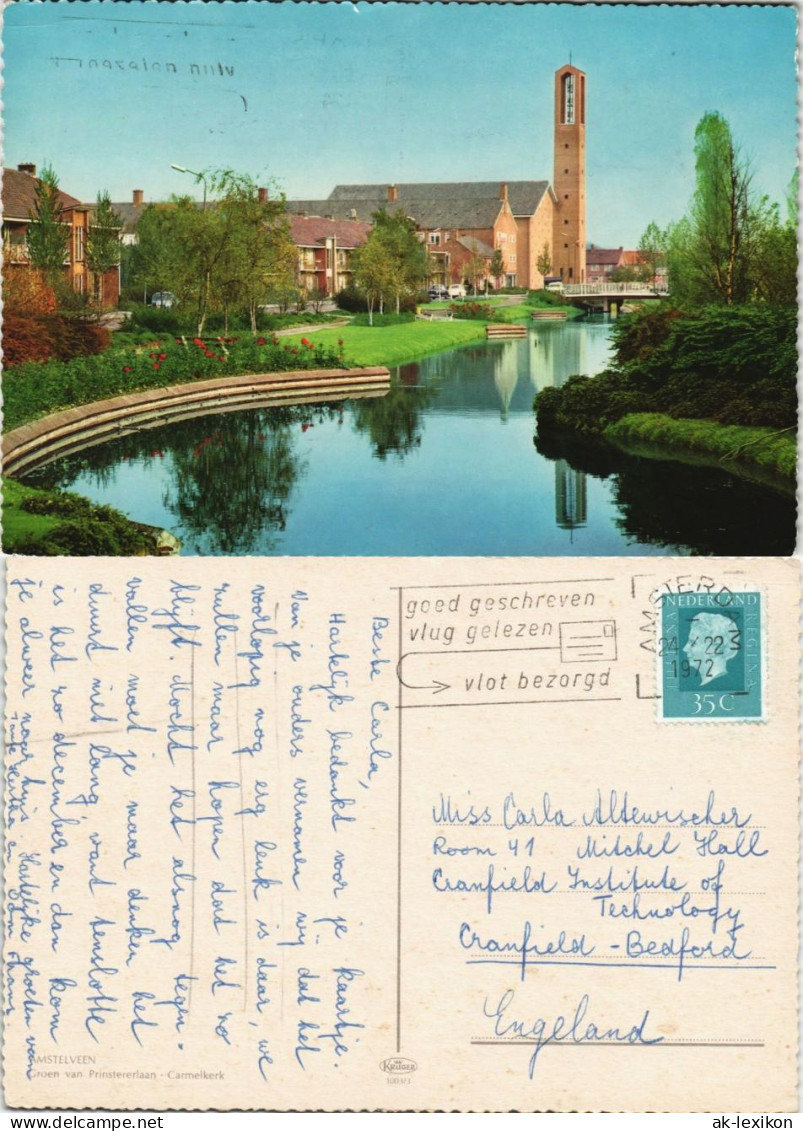 goed geschreven
vlug gelezen
vlot bezorgd
AMSTERD
24 X 22 3
1972
NEDERLAND
JULIANA REGINA
35 C
Beste Carla,
Hartelijk bedankt voor je kaartje.
Van je ouders vernamen wij dat het
voorlopig nog erg leuk is daar, we
zullen maar hopen dat het zo
blijft. Mocht het alsnog tegen-
vallen moet je maar denken het
duurt niet lang, want tenslotte
is het zo december en dan kom
je alweer naar huis. Hartelijke groeten van
Tante en Oom
Miss Carla Altewischer
Room 41 Mitchel Hall
Cranfield Institute of
Technology
Cranfield - Bedford
Engeland
AMSTELVEEN
Groen van Prinstererlaan - Carmelkerk
KRUGER
ak-lexikon